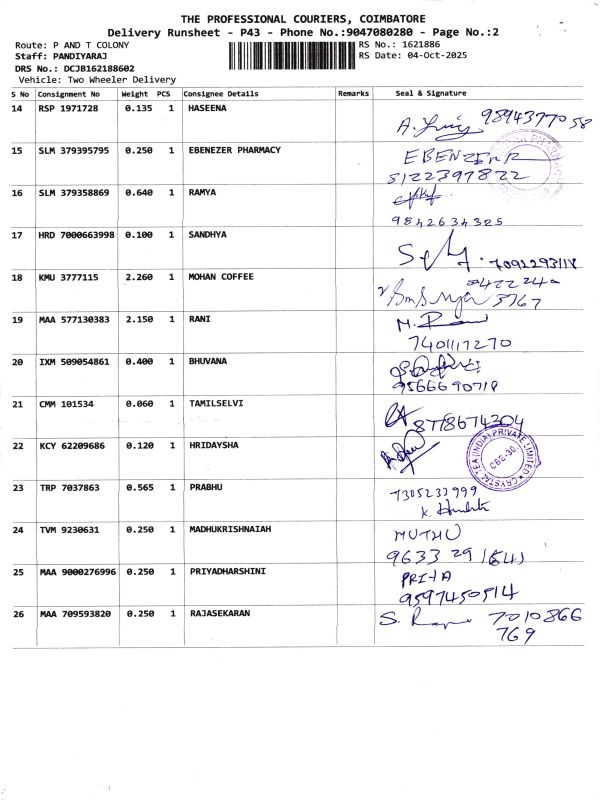 THE PROFESSIONAL COURIERS, COIMBATORE
Delivery Runsheet - P43 - Phone No.:9047080280 - Page No.:2
Route: P AND T COLONY
RS No.: 1621886
Staff: PANDIYARAJ
RS Date: 04-Oct-2025
DRS No.: DCJB162188602
Vehicle: Two Wheeler Delivery
S No Consignment No Weight PCS Consignee Details Remarks Seal & Signature
14 RSP 1971728 0.135 1 HASEENA
9894377058
15 SLM 379395795 0.250 1 EBENEZER PHARMACY
EBENZER
8122397822
16 SLM 379358869 0.640 1 RAMYA
9842634325
17 HRD 7000663998 0.100 1 SANDHYA
7092293118
18 KMU 3777115 2.260 1 MOHAN COFFEE
3767
19 MAA 577130383 2.150 1 RANI
M. Rani
7401117270
20 IXM 509054861 0.400 1 BHUVANA
9566690718
21 CMM 101534 0.060 1 TAMILSELVI
8778674204
22 KCY 62209686 0.120 1 HRIDAYSHA
CRYSTAL TEA (INDIA) PRIVATE LIMITED
CBE-30
23 TRP 7037863 0.565 1 PRABHU
7305233999
24 TVM 9230631 0.250 1 MADHUKRISHNAIAH
MUTHU
9633 29 1541
25 MAA 9000276996 0.250 1 PRIYADHARSHINI
PRIYA
9597450514
26 MAA 709593820 0.250 1 RAJASEKARAN
S. 7010866
769